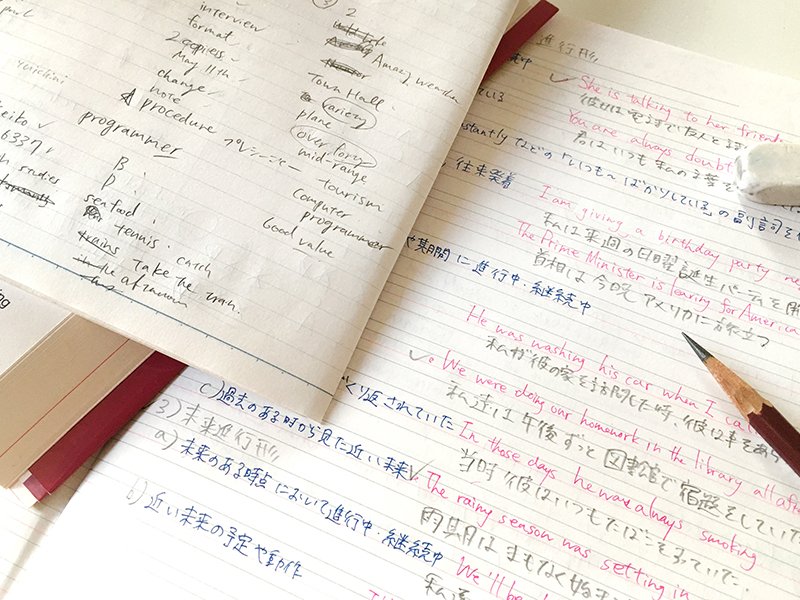 interview
format
2 copies
May 11th
change
note
procedure プロシージャー
programmer
B
D
seafood
tennis. catch
trains take the train.
in the afternoon
2
Amazing weather
Town Hall
variety
plane
over forty
mid-range
tourism
computer
programmer
Good value
6337
進行形
She is talking to her friend
You are always doubt
constantly などの「いつも〜ばかりしている」の副詞を
往来発着
I am giving a birthday party ne
私は来週の日曜誕生パーティを開
The Prime Minister is leaving for America
首相は今晩アメリカに旅立つ
や期間に進行中・継続中
He was washing his car when I call
私が彼の家を訪問した時、彼は車をあら
We were doing our homework in the library all after
私達は午後ずっと図書館で宿題をしていた
くり返されていた
In those days he was always smoking
当時彼はいつもたばこを吸っていた
c) 過去のある時から見た近い未来
The rainy season was setting in
雨期はまもなく始ま
3) 未来進行形
a) 未来のある時点において進行中・継続中
We'll be
私達
b) 近い未来の予定や動作